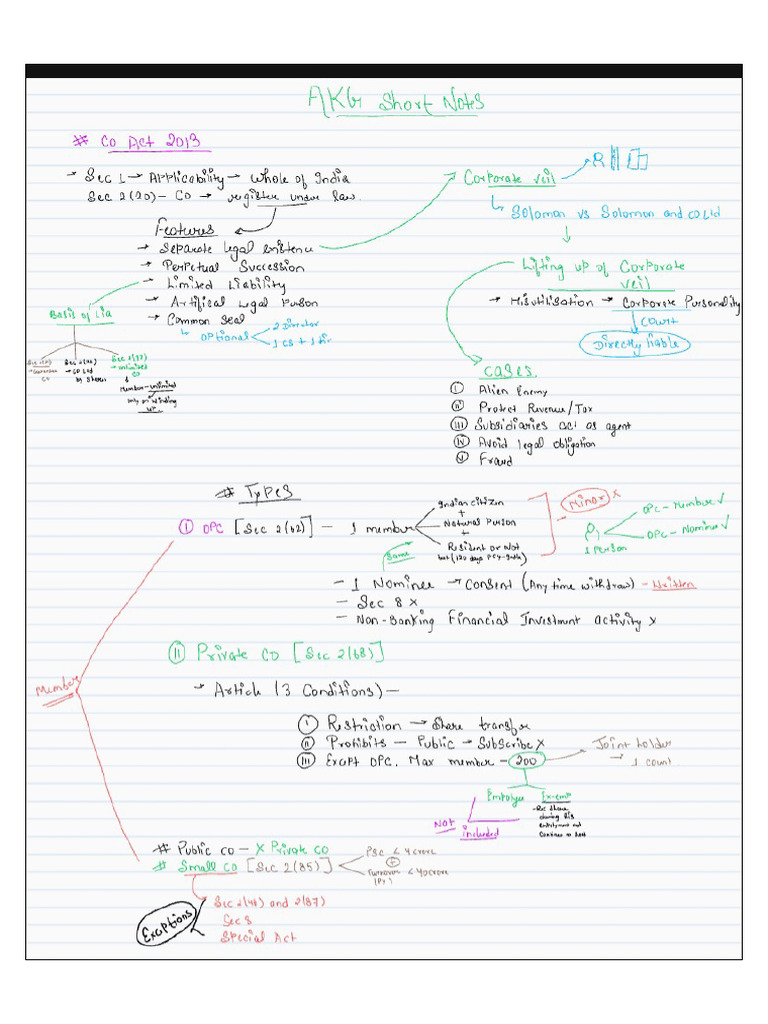 AKG Short Notes
# Co Act 2013
→ Sec 1 → Applicability → Whole of India
Sec 2(20) - Co → register under law.
Features
→ Separate legal existence
→ Perpetual Succession
→ Limited Liability
→ Artifical Legal Person
→ Common Seal
↳ Optional
2 Director
1 CS + 1 dir
Basis of Lia
→ Co Ltd
by shares
Sec 2(92)
→ unlimited
Co
Member - unlimited
only on winding
up.
Corporate veil
R
Solomon vs Solomon and co Ltd
Lifting up of Corporate
veil
→ Misutilisation → Corporate Personality
Court
Directly liable
Cases.
I Alien Enemy
II Protect Revenue/Tax
III Subsidiaries act as agent
IV Avoid legal obligation
V Fraud
# Types
I OPC [Sec 2(62)] - 1 member
Indian citizen
+
Natural Person
+
Resident or Not
but (120 days PFY-India)
Minor X
1 Person
OPC - Member ✓
OPC - Nominee ✓
Same
- 1 Nominee → Consent (Any time withdraw) - Written
- Sec 8 X
- Non-Banking Financial Investment activity X
II Private Co [Sec 2(68)]
→ Article (3 Conditions) -
I Restriction → Share transfer
II Prohibits - Public → Subscribe X
III Except OPC, Max member - 200
Joint holder
→ 1 count
Employee
Ex-emp
Not included
Member
# Public co - X Private co
# Small co [Sec 2(85)]
PSC < 4 crore
+
Turnover < 40 crore
(PY)
Exceptions
Sec 2(46) and 2(87)
Sec 8
Special Act